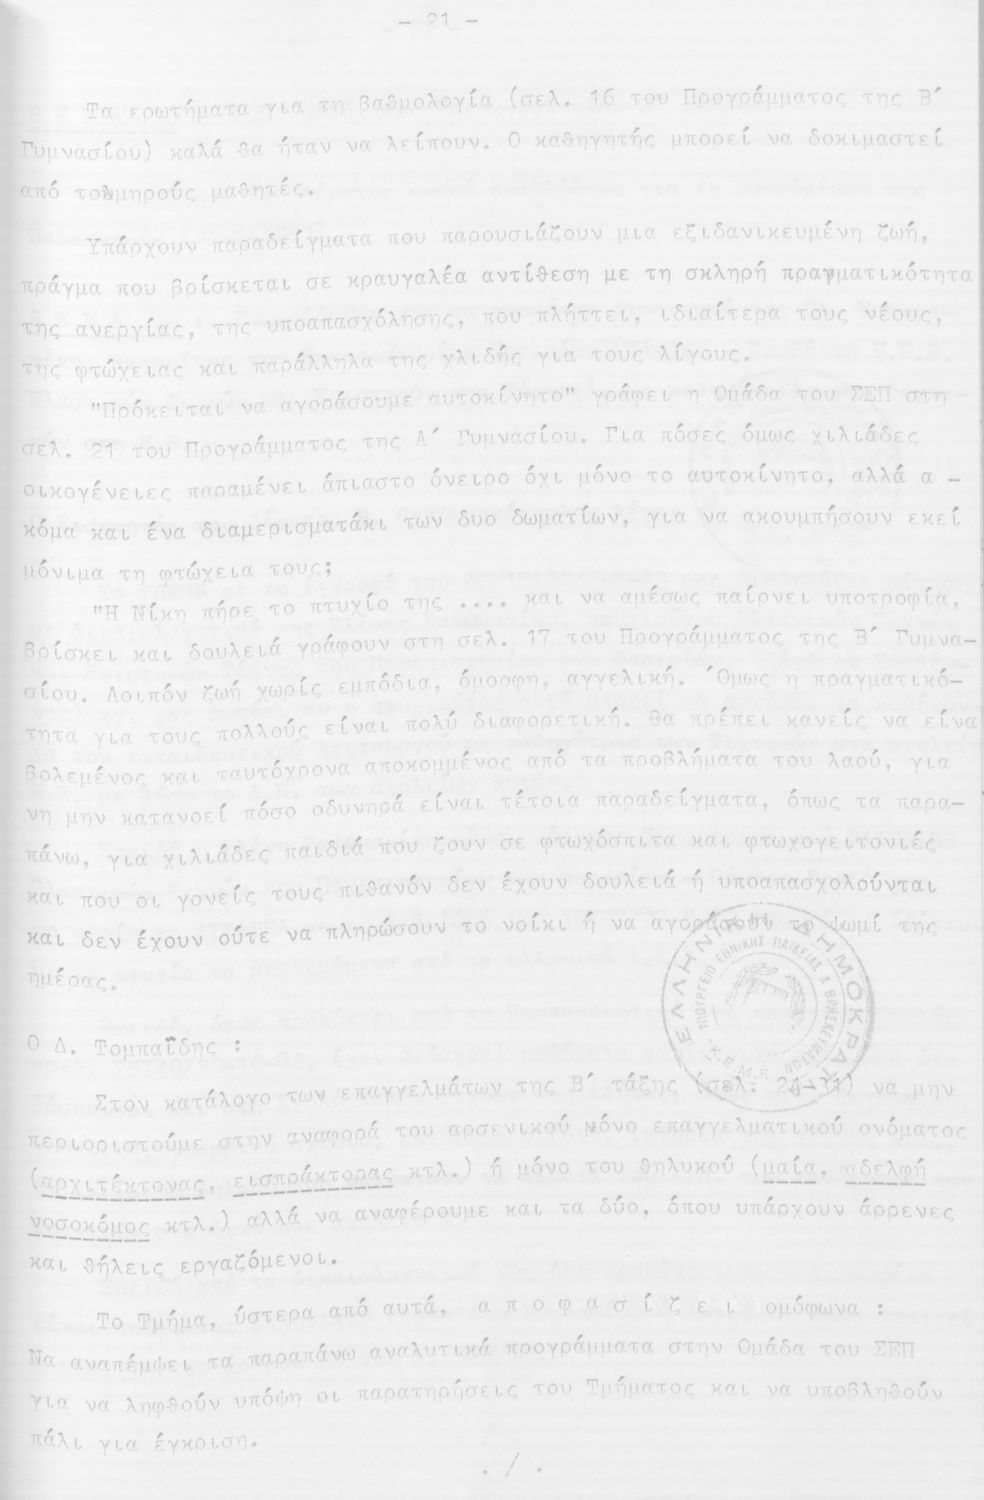 - 21 -
Τα ερωτήματα για τη βαθμολογία (σελ. 16 του Προγράμματος της Β΄
Γυμνασίου) καλά θα ήταν να λείπουν. Ο καθηγητής μπορεί να δοκιμαστεί
από τολμηρούς μαθητές.
Υπάρχουν παραδείγματα που παρουσιάζουν μια εξιδανικευμένη ζωή,
πράγμα που βρίσκεται σε κραυγαλέα αντίθεση με τη σκληρή πραγματικότητα
της ανεργίας, της υποαπασχόλησης, που πλήττει, ιδιαίτερα τους νέους,
της φτώχειας και παράλληλα της χλιδής για τους λίγους.
"Πρόκειται να αγοράσουμε αυτοκίνητο" γράφει η Ομάδα του ΣΕΠ στη
σελ. 21 του Προγράμματος της Α΄ Γυμνασίου. Για πόσες όμως χιλιάδες
οικογένειες παραμένει άπιαστο όνειρο όχι μόνο το αυτοκίνητο, αλλά α -
κόμα και ένα διαμερισματάκι των δυο δωματίων, για να ακουμπήσουν εκεί
μόνιμα τη φτώχεια τους;
"Η Νίκη πήρε το πτυχίο της .... και να αμέσως παίρνει υποτροφία,
βρίσκει και δουλειά γράφουν στη σελ. 17 του Προγράμματος της Β΄ Γυμνα-
σίου. Λοιπόν ζωή χωρίς εμπόδια, όμορφη, αγγελική. Όμως η πραγματικό-
τητα για τους πολλούς είναι πολύ διαφορετική. Θα πρέπει κανείς να είνα
βολεμένος και ταυτόχρονα αποκομμένος από τα προβλήματα του λαού, για
νη μην κατανοεί πόσο οδυνηρά είναι τέτοια παραδείγματα, όπως τα παρα-
πάνω, για χιλιάδες παιδιά που ζουν σε φτωχόσπιτα και φτωχογειτονιές
και που οι γονείς τους πιθανόν δεν έχουν δουλειά ή υποαπασχολούνται
και δεν έχουν ούτε να πληρώσουν το νοίκι ή να αγοράσουν το ψωμί της
ημέρας.
ΕΛΛΗΝΙΚΗ ΔΗΜΟΚΡΑΤΙΑ
ΥΠΟΥΡΓΕΙΟ ΕΘΝΙΚΗΣ ΠΑΙΔΕΙΑΣ & ΘΡΗΣΚΕΥΜΑΤΩΝ
Ο Δ. Τομπαΐδης :
Στον κατάλογο των επαγγελμάτων της Β΄ τάξης (σελ. 24-31) να μην
περιοριστούμε στην αναφορά του αρσενικού μόνο επαγγελματικού ονόματος
(αρχιτέκτονας, εισπράκτορας κτλ.) ή μόνο του θηλυκού (μαία, αδελφή
νοσοκόμος κτλ.) αλλά να αναφέρουμε και τα δύο, όπου υπάρχουν άρρενες
και θήλεις εργαζόμενοι.
Το Τμήμα, ύστερα από αυτά, α π ο φ α σ ί ζ ε ι ομόφωνα :
Να αναπέμψει τα παραπάνω αναλυτικά προγράμματα στην Ομάδα του ΣΕΠ
για να ληφθούν υπόψη οι παρατηρήσεις του Τμήματος και να υποβληθούν
πάλι για έγκριση.
. / .